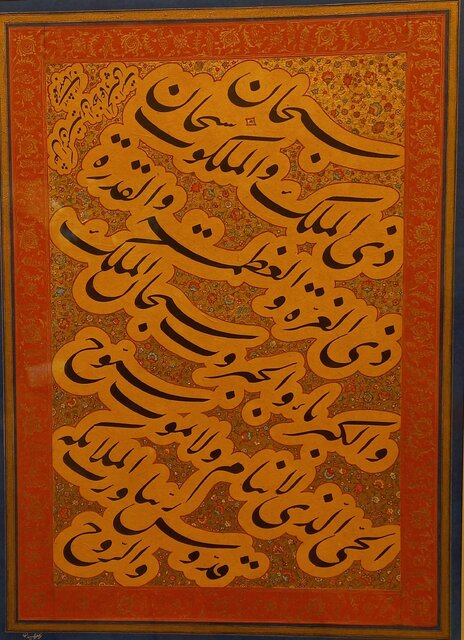 سبحان
ذی الملک والملکوت سبحان
ذی العزة والعظمت والقدرة
والکبریاء والجبروت سبحان الملک
الحی الذی لاینام ولایموت سبوح
قدوس ربنا ورب الملائکه
والروح